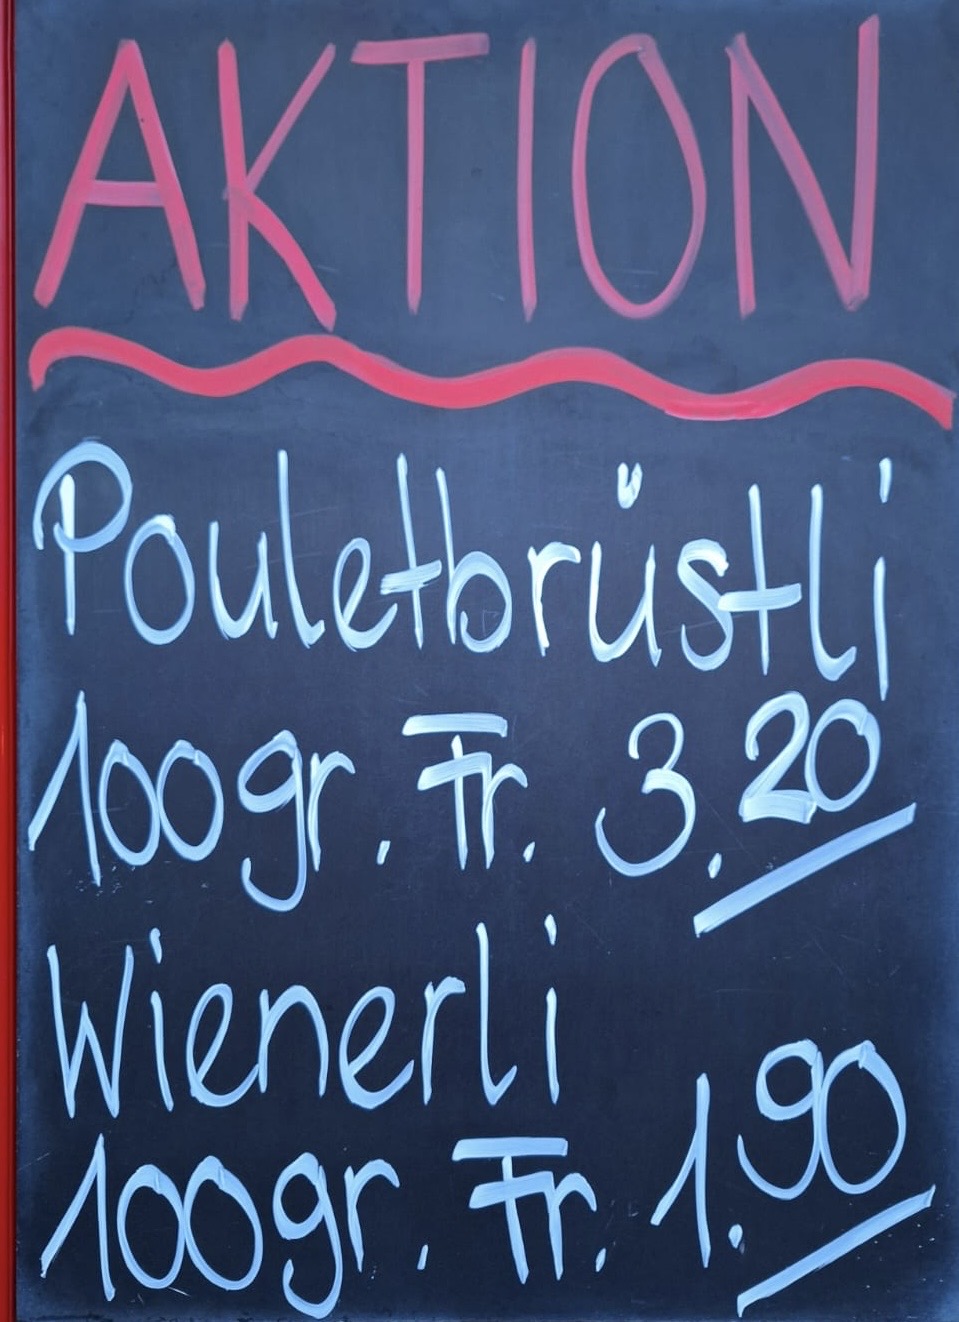 AKTION
Pouletbrüstli
100gr. Fr. 3.20
Wienerli
100gr. Fr. 1.90